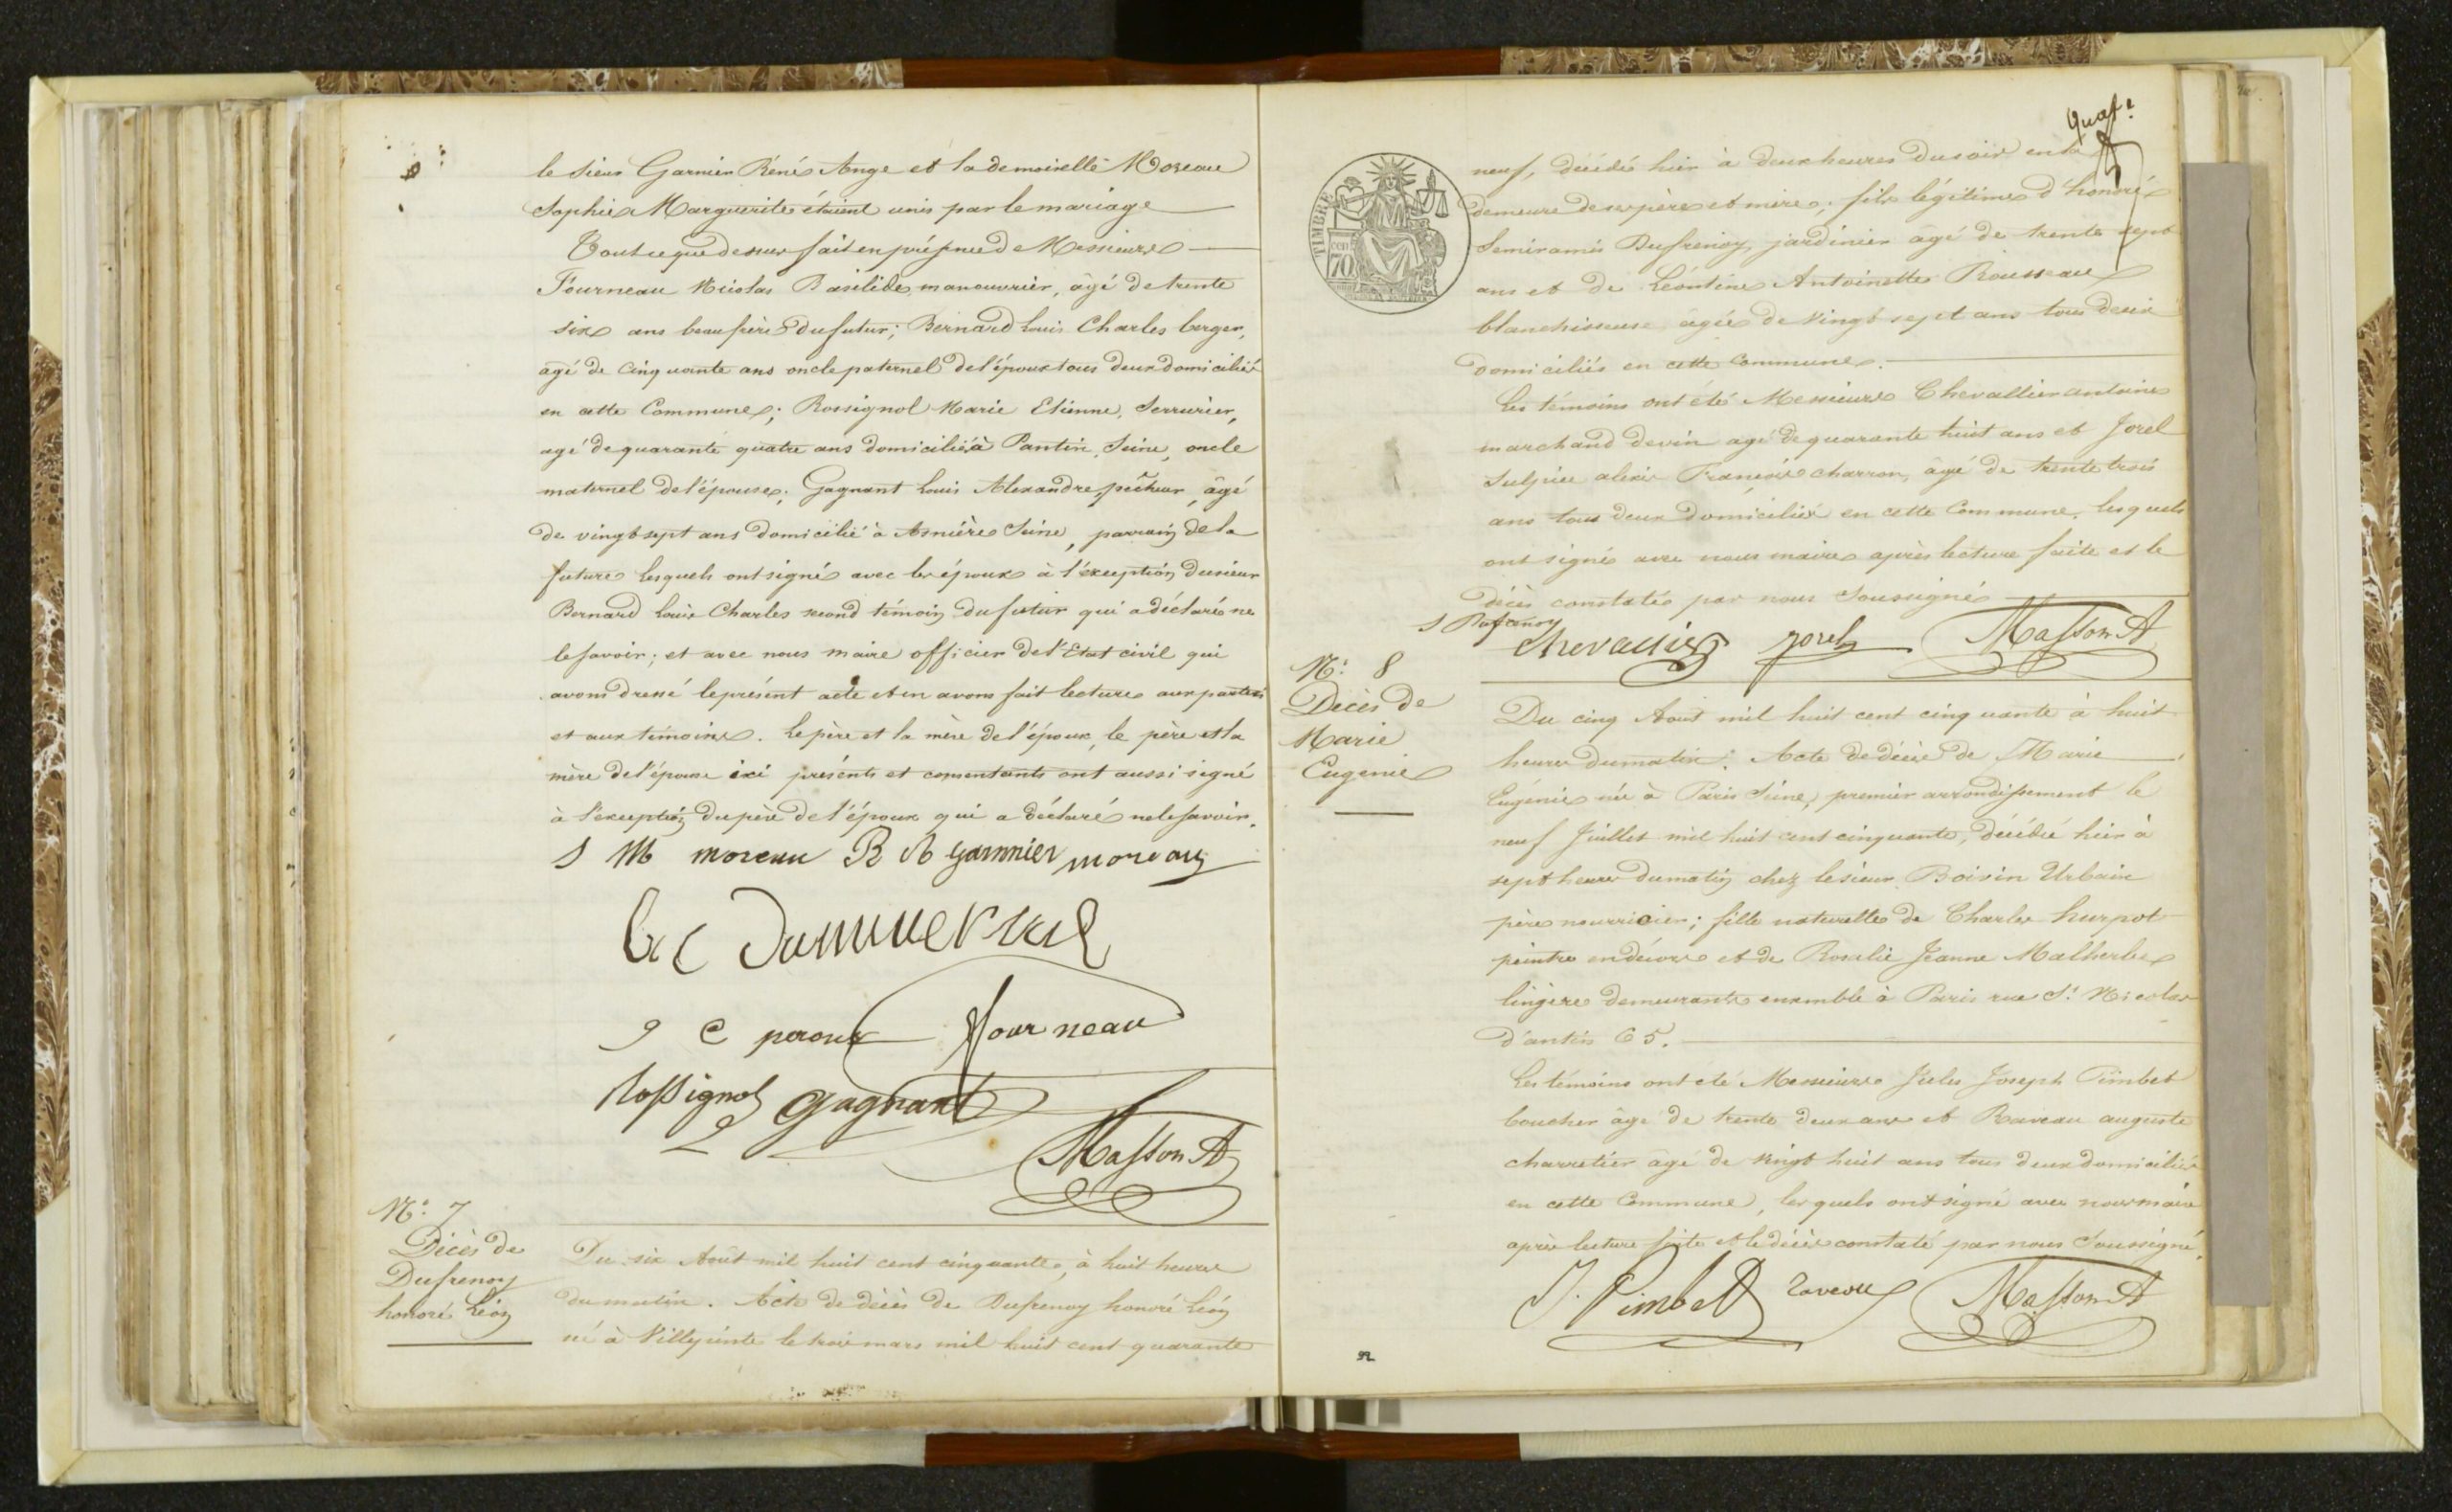 le sieur Garnier Réné Ange et la demoiselle Moreau
Sophie Marguerite étaient unis par le mariage
Tout ce que dessus fait en présence de Messieurs
Fourneau Nicolas Basilide, manouvrier, âgé de trente
six ans beau frère du futur; Bernard Louis Charles berger,
âgé de cinquante ans oncle paternel de l'époux tous deux domiciliés
en cette Commune; Rossignol Marie Etienne, Serrurier,
agé de quarante quatre ans domicilié à Pantin, Seine, oncle
maternel de l'épouse; Gagnant Louis Alexandre, pêcheur, âgé
de vingt sept ans domicilié à Asnière Seine, parrain de la
future lesquels ont signé avec les époux à l'exception du sieur
Bernard Louis Charles second témoin du futur qui a déclaré ne
le savoir; et avec nous maire officier de l'Etat civil qui
avons dressé le présent acte et en avons fait lecture aux parties
et aux témoins. Le père et la mère de l'époux, le père et la
mère de l'épouse ici présents et consentants ont aussi signé
à l'exception du père de l'époux qui a déclaré ne le savoir.
S M moreau R A garnnier moreau
fourneau
Rossignol gagnant
Masson A
N.° 7
Décès de
Dufrenoy
honoré Léon
Du six Août mil huit cent cinquante, à huit heures
du matin. Acte de décès de Dufrenoy honoré Léon
né à Villejuste le trois mars mil huit cent quarante
TIMBRE
70
neuf, décédé hier à deux heures du soir en la
demeure de ses père et mère; fils légitime d'honoré
Semiramis Dufrenoy, jardinier âgé de trente sept
ans et de Léontine Antoinette Rousseau
blanchisseuse agée de vingt sept ans tous deux
domiciliés en cette Commune.
Les témoins ont été Messieurs Chevallier antoine
marchand de vin agé de quarante huit ans et Jorel
Sulpice alexis François charron, âgé de trente trois
ans tous deux domiciliés en cette Commune, lesquels
ont signé avec nous maire après lecture faite et le
décès constaté par nous Soussigné
Chevallier Jorel Masson A
N.° 8
Décès de
Marie
Eugénie
Du cinq Aout mil huit cent cinquante à huit
heures du matin. Acte de décès de Marie
Eugénie née à Paris Seine, premier arrondissement le
neuf Juillet mil huit cent cinquante, décédée hier à
sept heures du matin chez le sieur Boisin Urbain
père nourricier; fille naturelle de Charles hurpot
peintre en décors et de Rosalie Jeanne Malherbe
lingère demeurants ensemble à Paris rue St. Nicolas
d'antin 65.
Les témoins ont été Messieurs Jules Joseph Pimbet
boucher âgé de trente deux ans et Raveau auguste
charretier âgé de vingt huit ans tous deux domiciliés
en cette Commune, lesquels ont signé avec nous maire
après lecture faite et le décès constaté par nous Soussigné.
J. Pimbet raveau Masson A